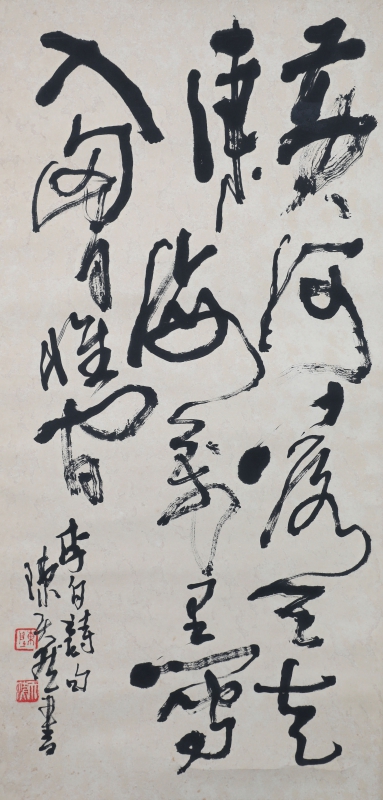 黃河落天走
東海萬里寫
入胸懷間
李白詩句
陳書